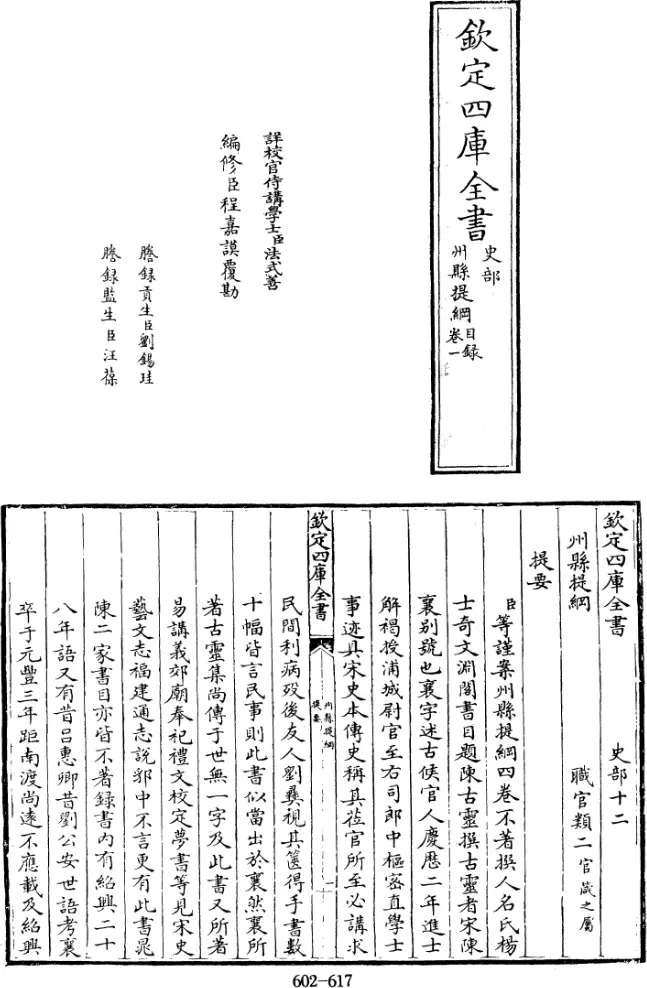 欽定四庫全書
史部
州縣提綱目録
卷一
詳校官侍講學士臣法式善
編修臣程嘉謨覆勘
謄録貢生臣劉錫珪
謄録監生臣汪葆
欽定四庫全書
史部十二
州縣提綱
職官類二官箴之屬
提要
臣等謹案州縣提綱四卷不著撰人名氏楊
士奇文淵閣書目題陳古靈撰古靈者宋陳
襄别號也襄字述古侯官人慶厯二年進士
解褐授浦城尉官至右司郎中樞密直學士
事迹具宋史本傳史稱其莅官所至必講求
欽定四庫全書
州縣提綱
提要
一
民間利病殁後友人劉彝視其篋得手書數
十幅皆言民事則此書似當出於襄然襄所
著古靈集尚傳于世無一字及此書又所著
易講義郊廟奉祀禮文校定夢書等見宋史
藝文志福建通志說郛中不言更有此書晁
陳二家書目亦皆不著録書内有紹興二十
八年語又有昔吕惠卿昔劉公安世語考襄
卒于元豐三年距南渡尚逺不應載及紹興
602-617